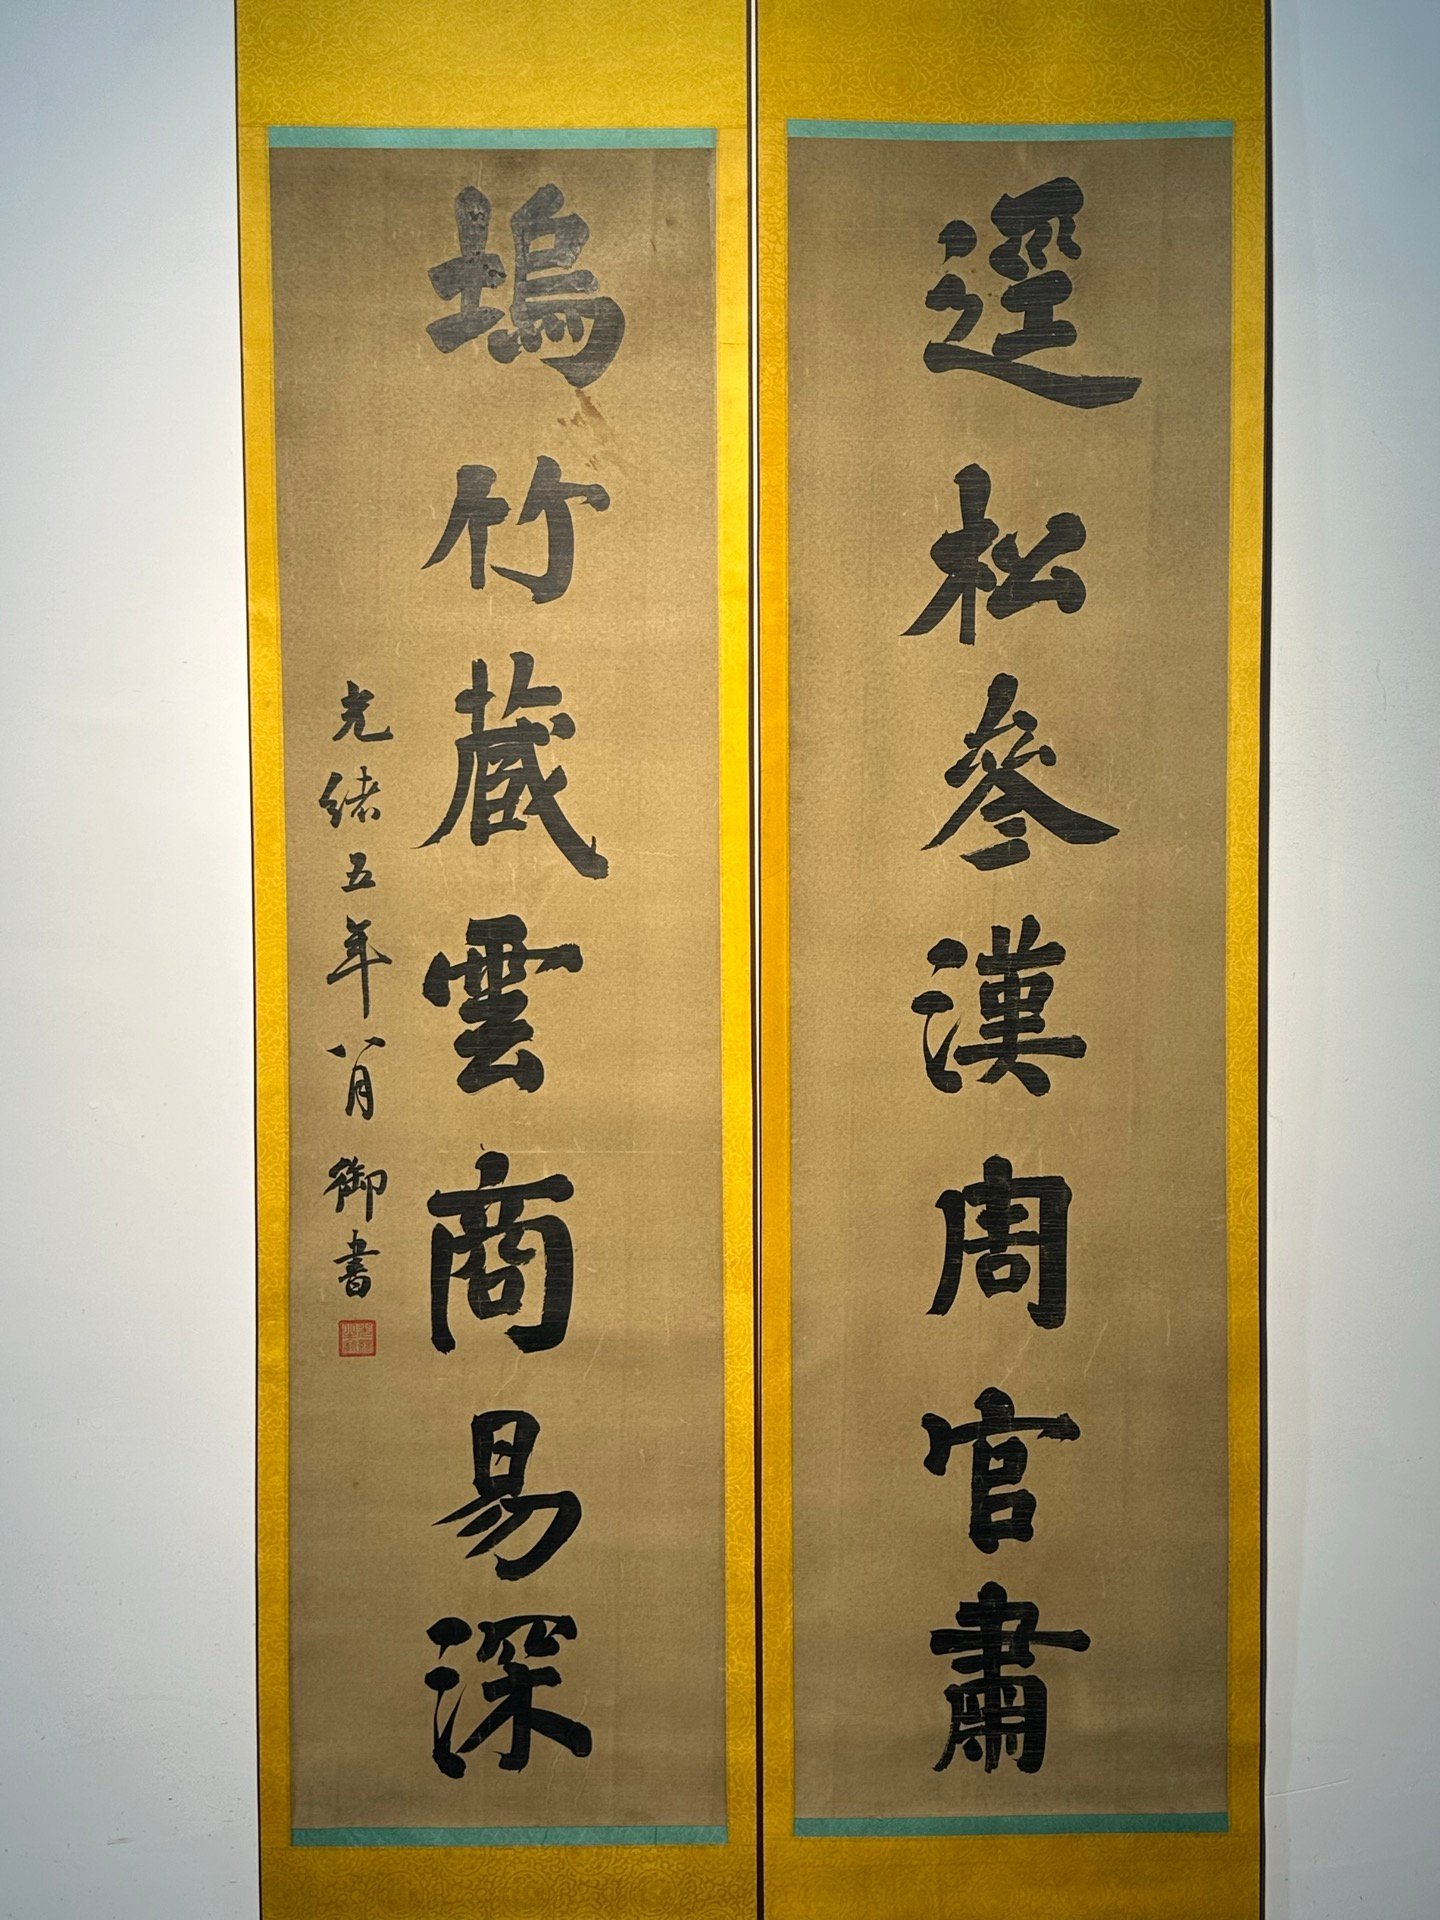 逕松參漢周官肅
塢竹藏雲商易深
光緒五年八月御書